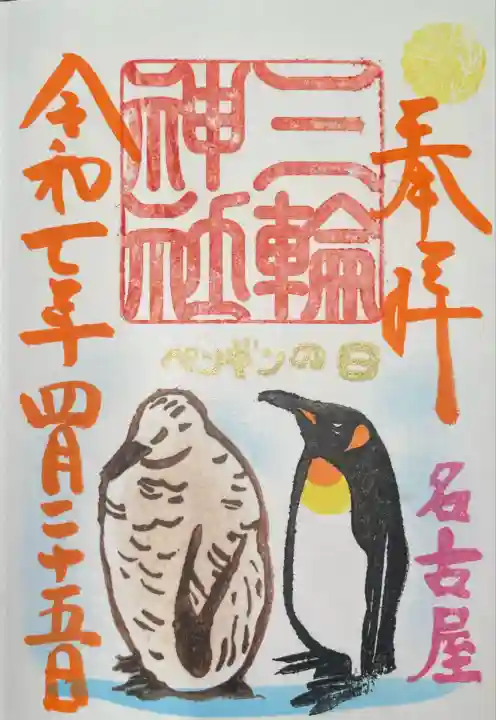 奉拝
三輪
神社
ペンギンの日
名古屋
令和七年四月二十五日